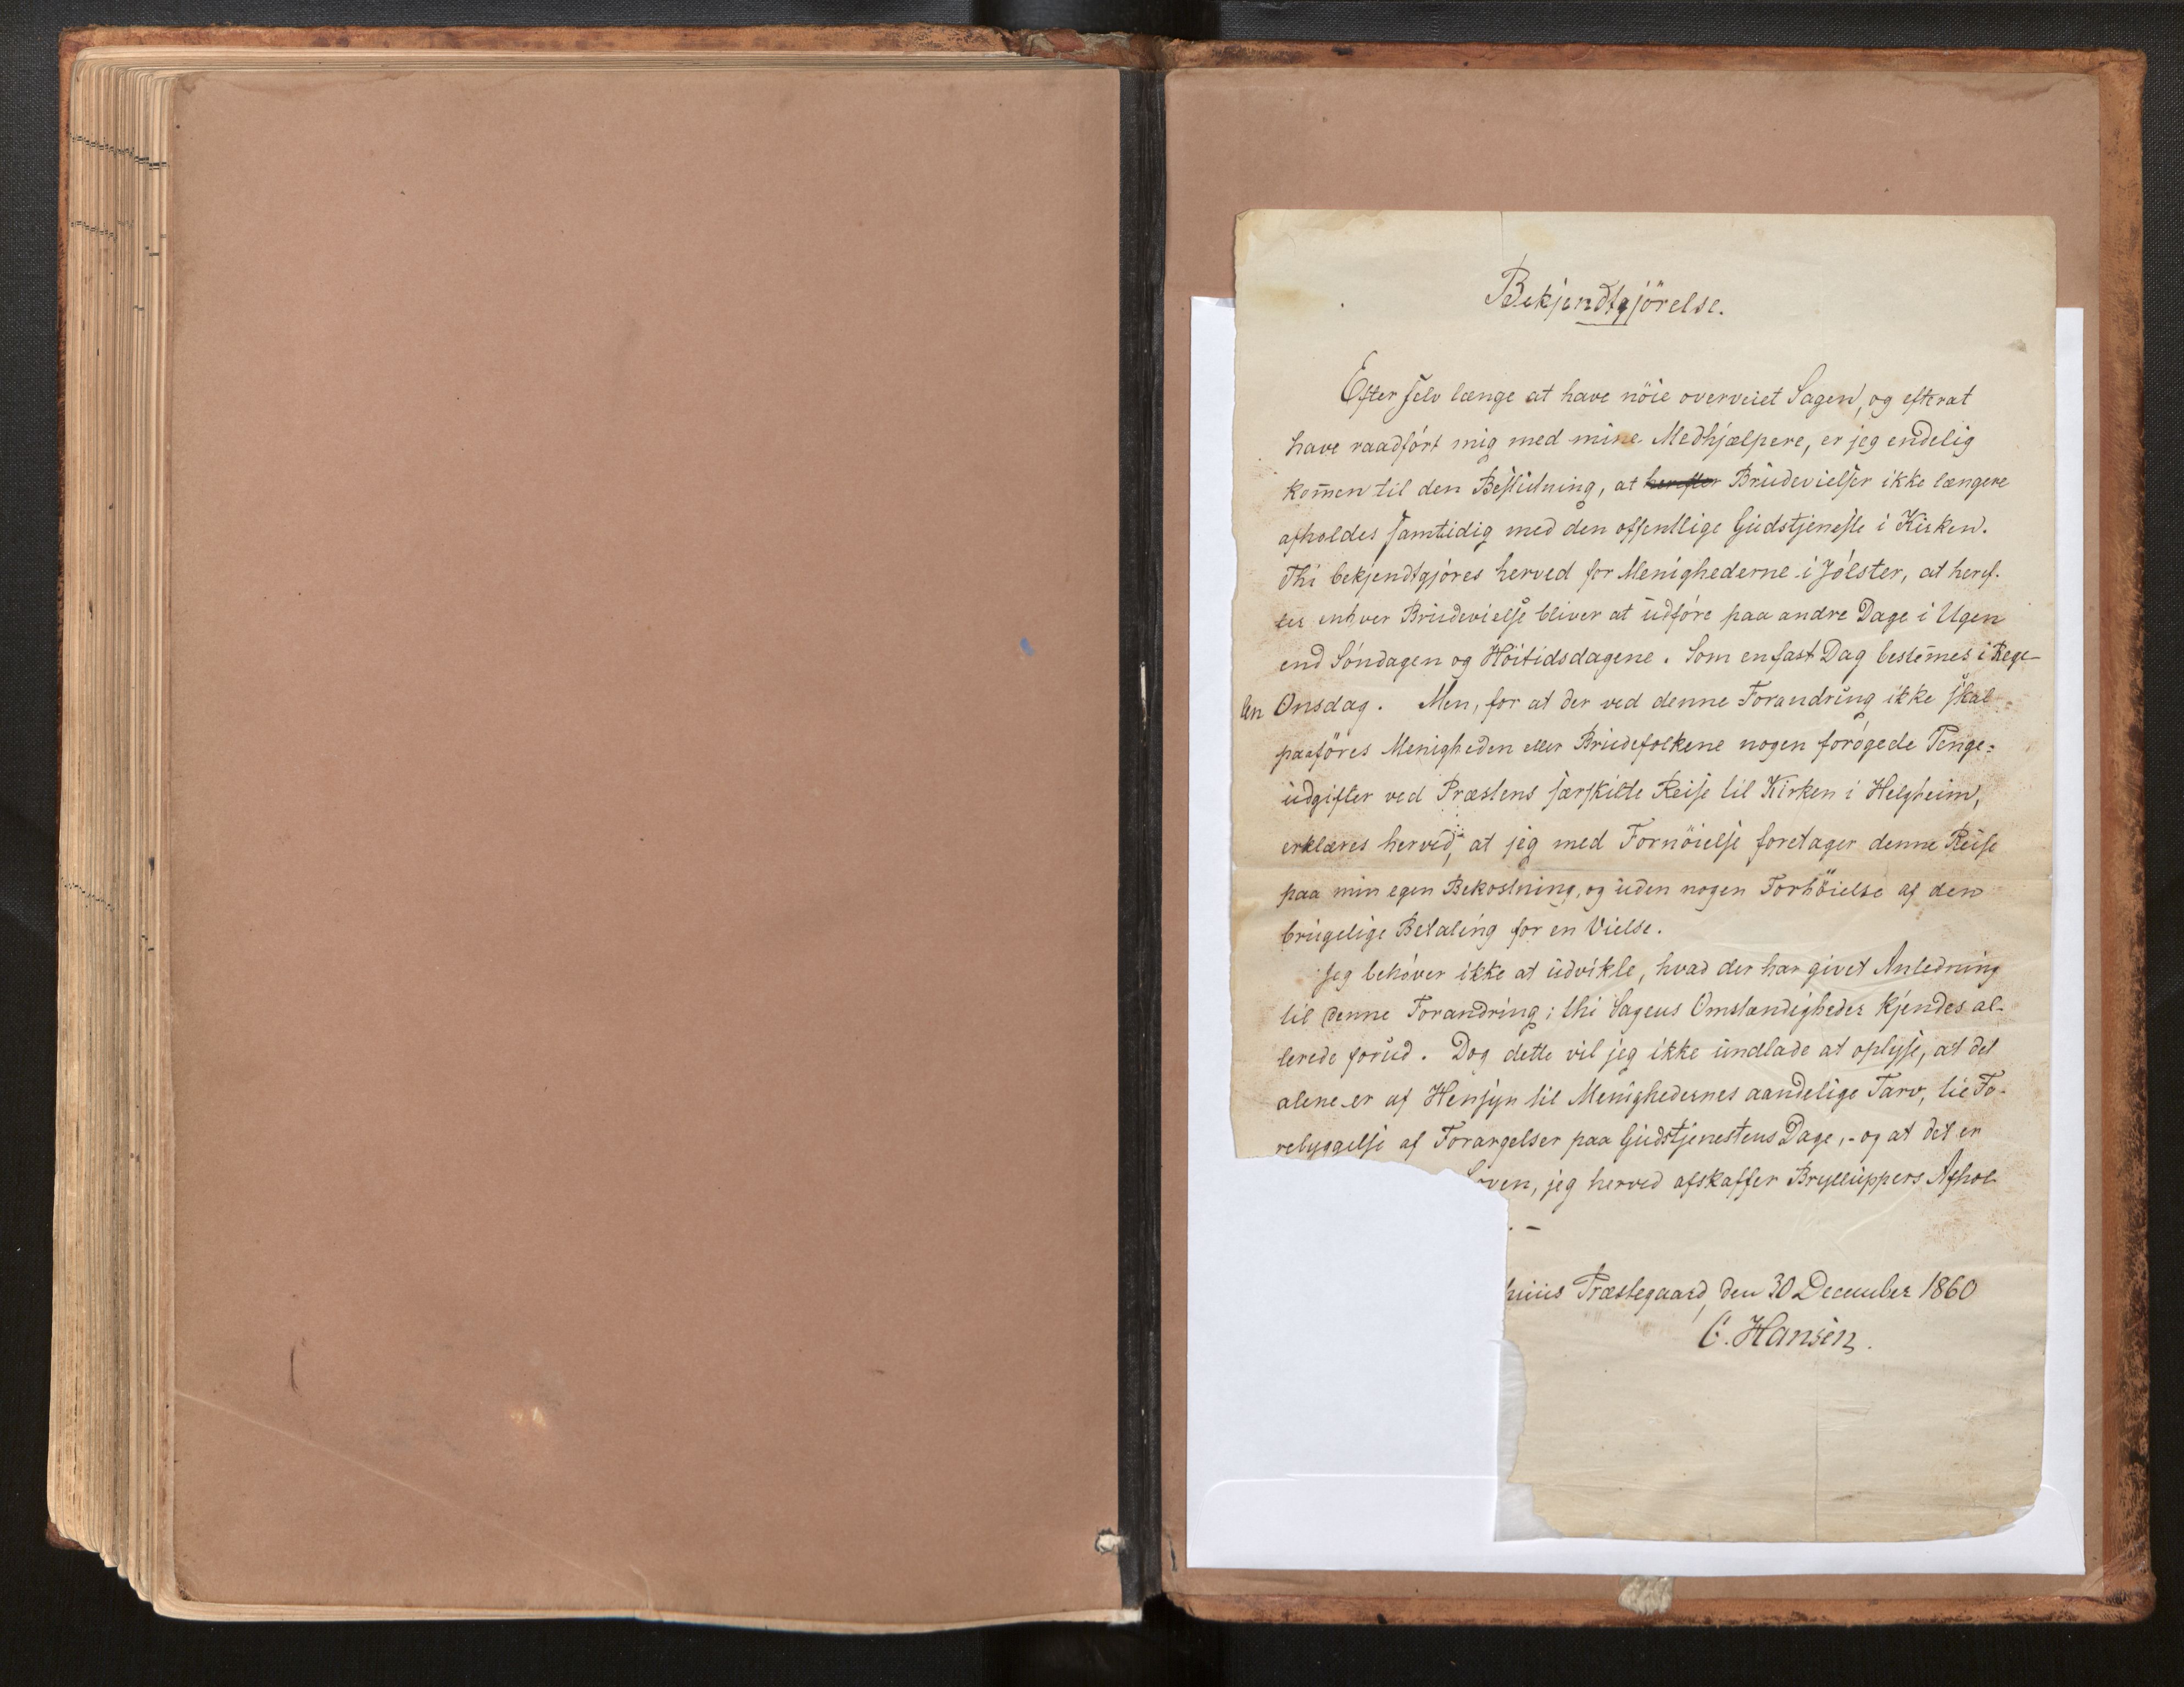 Bekjendtgjörelse.
Efter selv længe at have nöie overveiet Sagen, og efterat
have raadført mig med mine Medhjælpere, er jeg endelig
kom̄en til den Beslutning, at herefter Brudevielser ikke længere
afholdes samtidig med den offentlige Gudstjeneste i Kirken.
Thi bekjendtgjøres herved for Menighederne i Jølster, at heref-
ter enhver Brudevielse bliver at udføre paa andre Dage i Ugen
end Søndagen og Höitidsdagene. Som en fast Dag bestem̄es i Rege-
len Onsdag. Men, for at der ved denne Forandring ikke skal
paaföres Menigheden eller Brudefolkene nogen forøgede Penge=
udgifter ved Præstens særskilte Reise til Kirken i Helgheim,
erklæres herved, at jeg med Fornöielse foretager denne Reise
paa min egen Bekostning, og uden nogen Forhöielse af den
brugelige Betaling for en Vielse.
Jeg behøver ikke at udvikle, hvad der har givet Anledning
til denne Forandring; thi Sagens Omstændigheder kjendes al-
lerede forud. Dog dette vil jeg ikke undlade at oplyse, at det
alene er af Hensyn til Menighedernes aandelige Tarv, til Fo-
rebyggelse af Forargelser paa Gudstjenestens Dage, - og at det er
Loven, jeg herved afskaffer Bryllüppers Afhol-
. -
huus Præstegaard, den 30 December 1860
C. Hansen.